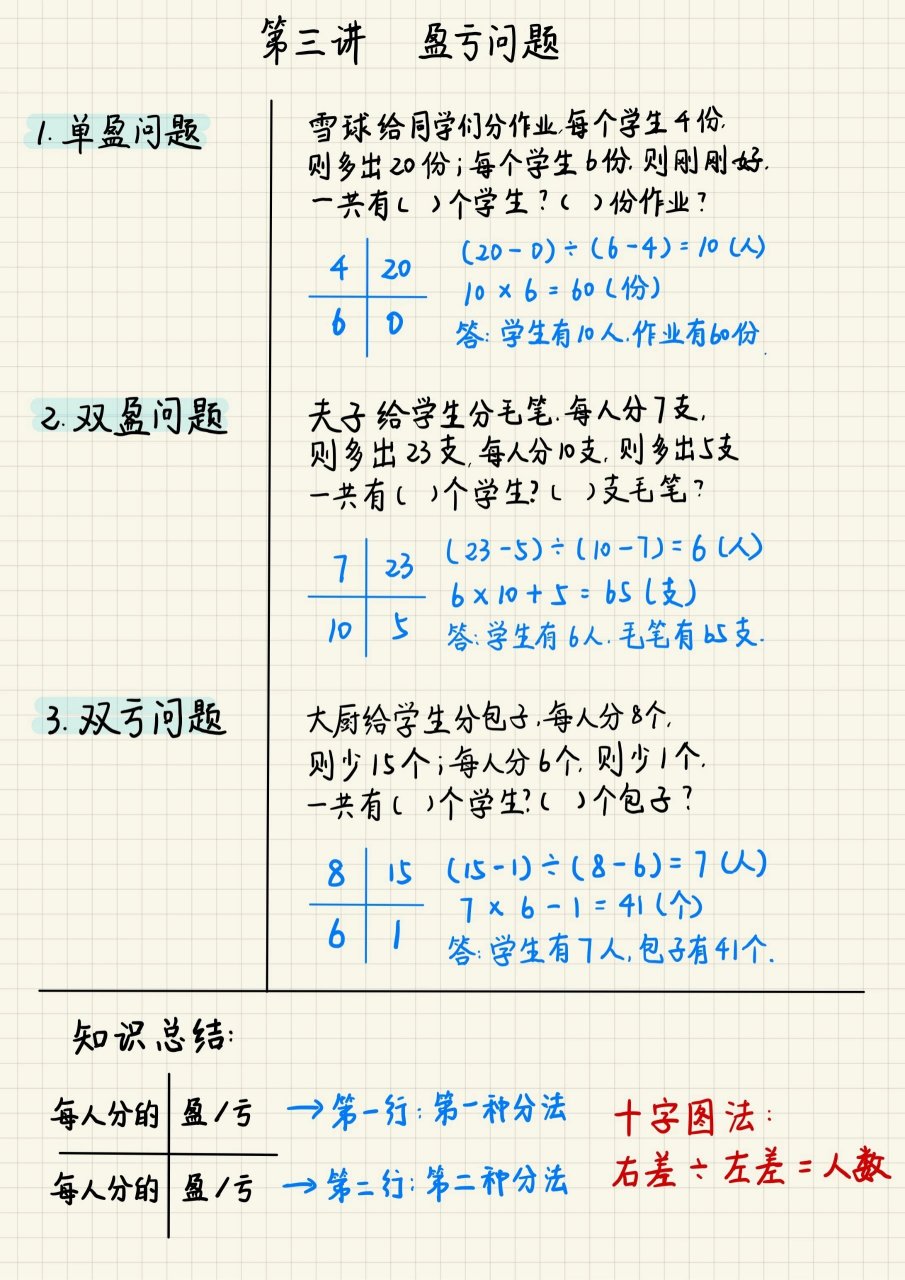 第三讲 盈亏问题
1.单盈问题
雪球给同学们分作业,每个学生4份,
则多出20份;每个学生6份,则刚刚好.
一共有( )个学生?( )份作业?
4 20
6 0
(20-0)÷(6-4)=10(人)
10×6=60(份)
答:学生有10人,作业有60份.
2.双盈问题
夫子给学生分毛笔.每人分7支,
则多出23支,每人分10支,则多出5支
一共有( )个学生?( )支毛笔?
7 23
10 5
(23-5)÷(10-7)=6(人)
6×10+5=65(支)
答:学生有6人.毛笔有65支.
3.双亏问题
大厨给学生分包子,每人分8个,
则少15个;每人分6个,则少1个.
一共有( )个学生?( )个包子?
8 15
6 1
(15-1)÷(8-6)=7(人)
7×6-1=41(个)
答:学生有7人,包子有41个.
知识总结:
每人分的 盈/亏 →第一行:第一种分法
每人分的 盈/亏 →第二行:第二种分法
十字图法:
右差÷左差=人数